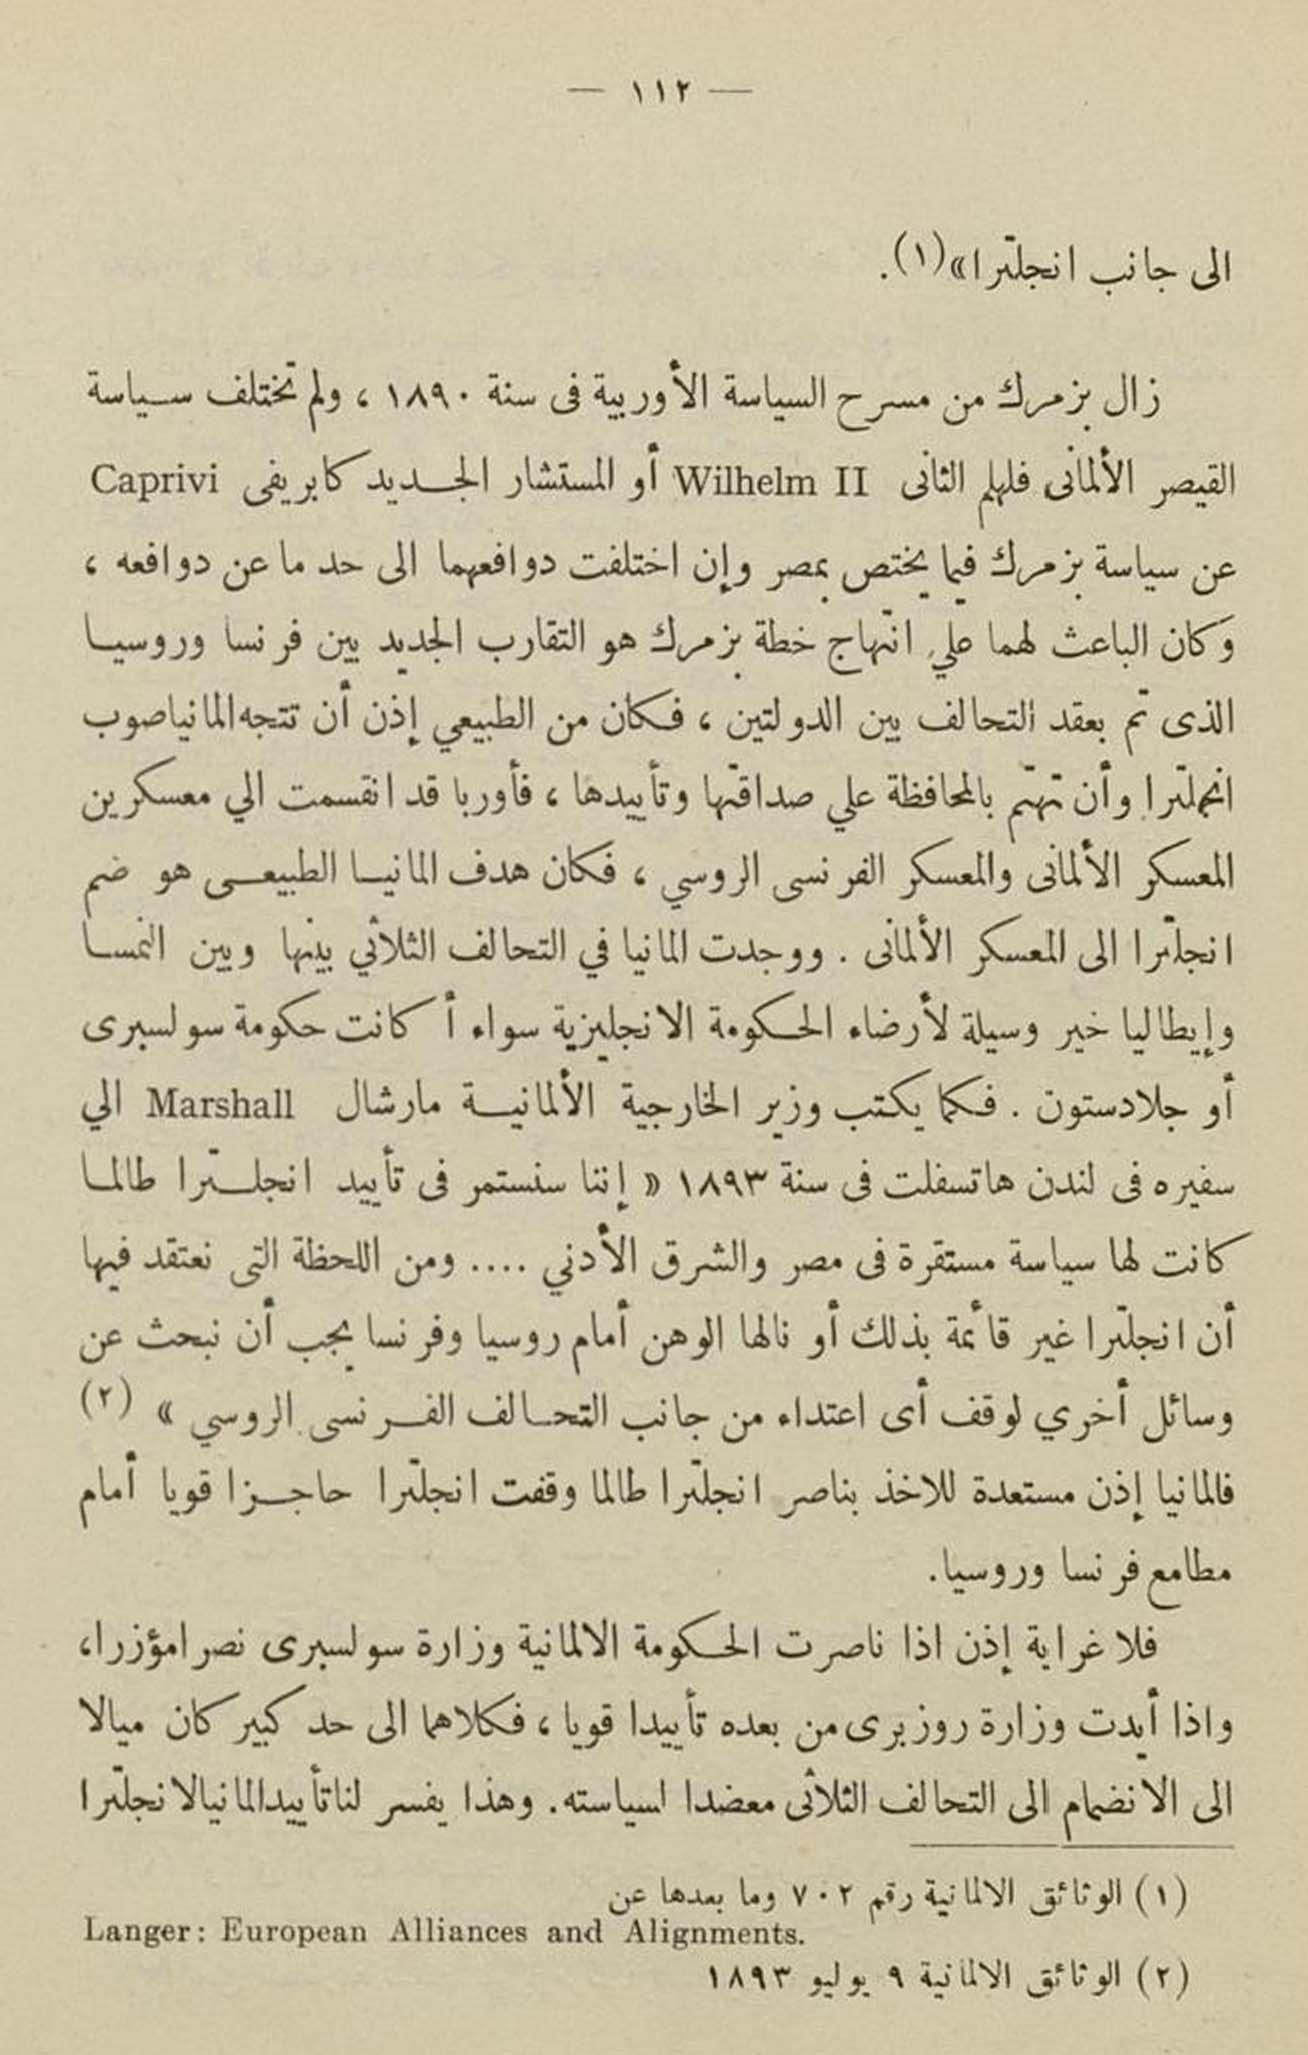 — ١١٢ —
الى جانب انجلترا» (١).
زال بزمرك من مسرح السياسة الأوربية فى سنة ١٨٩٠ ، ولم تختلف سياسة
القيصر الألمانى فلهلم الثانى Wilhelm II أو المستشار الجديد كابريفى Caprivi
عن سياسة بزمرك فيما يختص بمصر وإن اختلفت دوافعهما الى حد ما عن دوافعه ،
وكان الباعث لهما علي انتهاج خطة بزمرك هو التقارب الجديد بين فرنسا وروسيا
الذى تم بعقد التحالف بين الدولتين ، فكان من الطبيعي إذن أن تتجه المانيا صوب
انجلترا وأن تهتم بالمحافظة علي صداقتها وتأييدها ، فأوربا قد انقسمت الي معسكرين
المعسكر الألمانى والمعسكر الفرنسى الروسي ، فكان هدف المانيا الطبيعى هو ضم
انجلترا الى المعسكر الألمانى . ووجدت المانيا في التحالف الثلاثي بينها وبين النمسا
وإيطاليا خير وسيلة لأرضاء الحكومة الانجليزية سواء أ كانت حكومة سولسبرى
أو جلادستون . فكما يكتب وزير الخارجية الألمانية مارشال Marshall الي
سفيره فى لندن هاتسفلت فى سنة ١٨٩٣ « إننا سنستمر فى تأييد انجلترا طالما
كانت لها سياسة مستقرة فى مصر والشرق الأدني .... ومن اللحظة التى نعتقد فيها
أن انجلترا غير قائمة بذلك أو نالها الوهن أمام روسيا وفرنسا يجب أن نبحث عن
وسائل أخري لوقف أى اعتداء من جانب التحالف الفرنسى الروسي » (٢)
فالمانيا إذن مستعدة للاخذ بناصر انجلترا طالما وقفت انجلترا حاجزا قويا أمام
مطامع فرنسا وروسيا.
فلا غرابة إذن اذا ناصرت الحكومة الالمانية وزارة سولسبرى نصرا مؤزرا،
واذا أيدت وزارة روزبرى من بعده تأييدا قويا ، فكلاهما الى حد كبير كان ميالا
الى الانضمام الى التحالف الثلاثى معضدا لسياسته. وهذا يفسر لنا تأييد المانيا لانجلترا
(١) الوثائق الالمانية رقم ٧٠٢ وما بعدها عن
Langer: European Alliances and Alignments.
(٢) الوثائق الالمانية ٩ يوليو ١٨٩٣